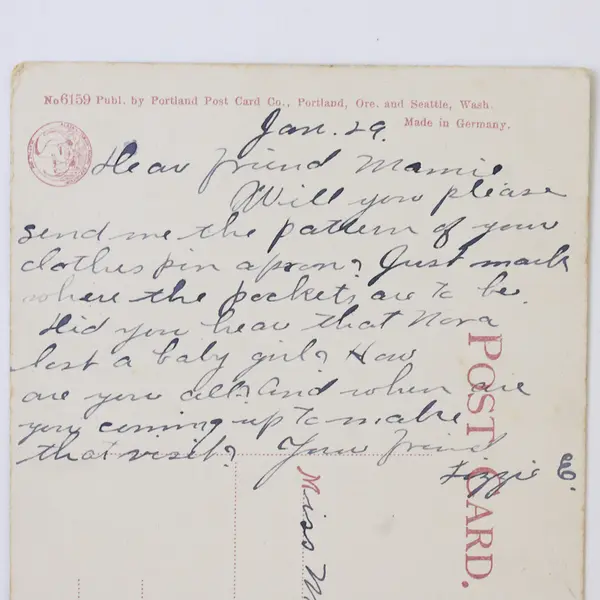 No 6159 Publ. by Portland Post Card Co., Portland, Ore. and Seattle, Wash.
Made in Germany.
Jan. 29.
Dear friend Mamie
Will you please
send me the pattern of your
clothes pin apron? Just mark
where the pockets are to be.
Did you hear that Nora
lost a baby girl? How
are you all? And when are
you coming up to make
that visit? Your friend
Lizzie E.
POST CARD.
Miss M